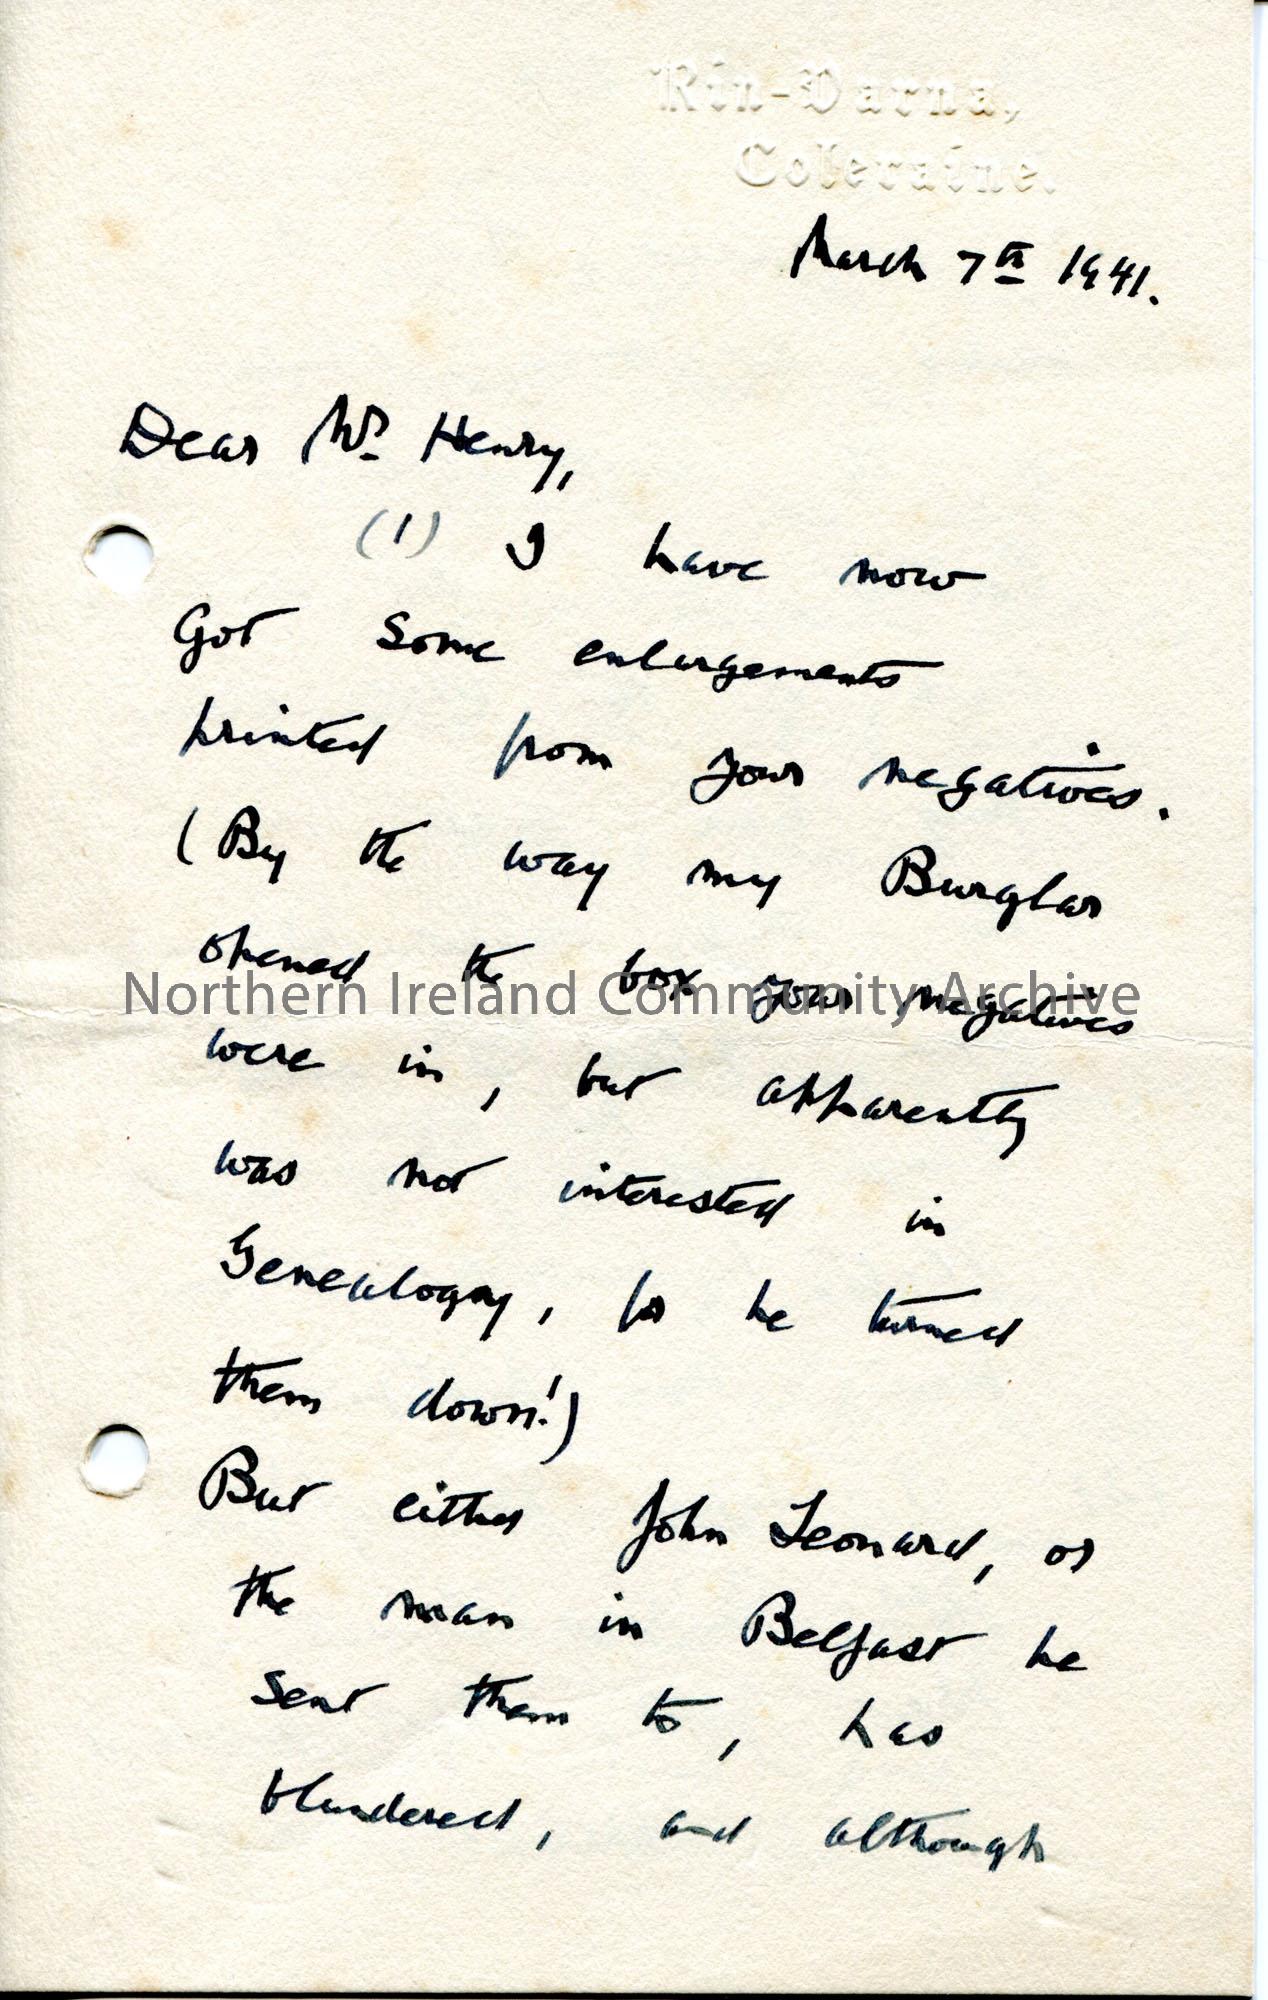 Rin-Darna,
Coleraine.
March 7th 1941.
Dear Mr Henry,
(1) I have now
Got some enlargements
printed from your negatives.
(By the way my Burglar
opened the box your negatives
Northern Ireland Community Archive
were in, but apparently
was not interested in
Genealogy, for he turned
them down!)
But either John Leonard, or
the man in Belfast he
sent them to, has
blundered, and although